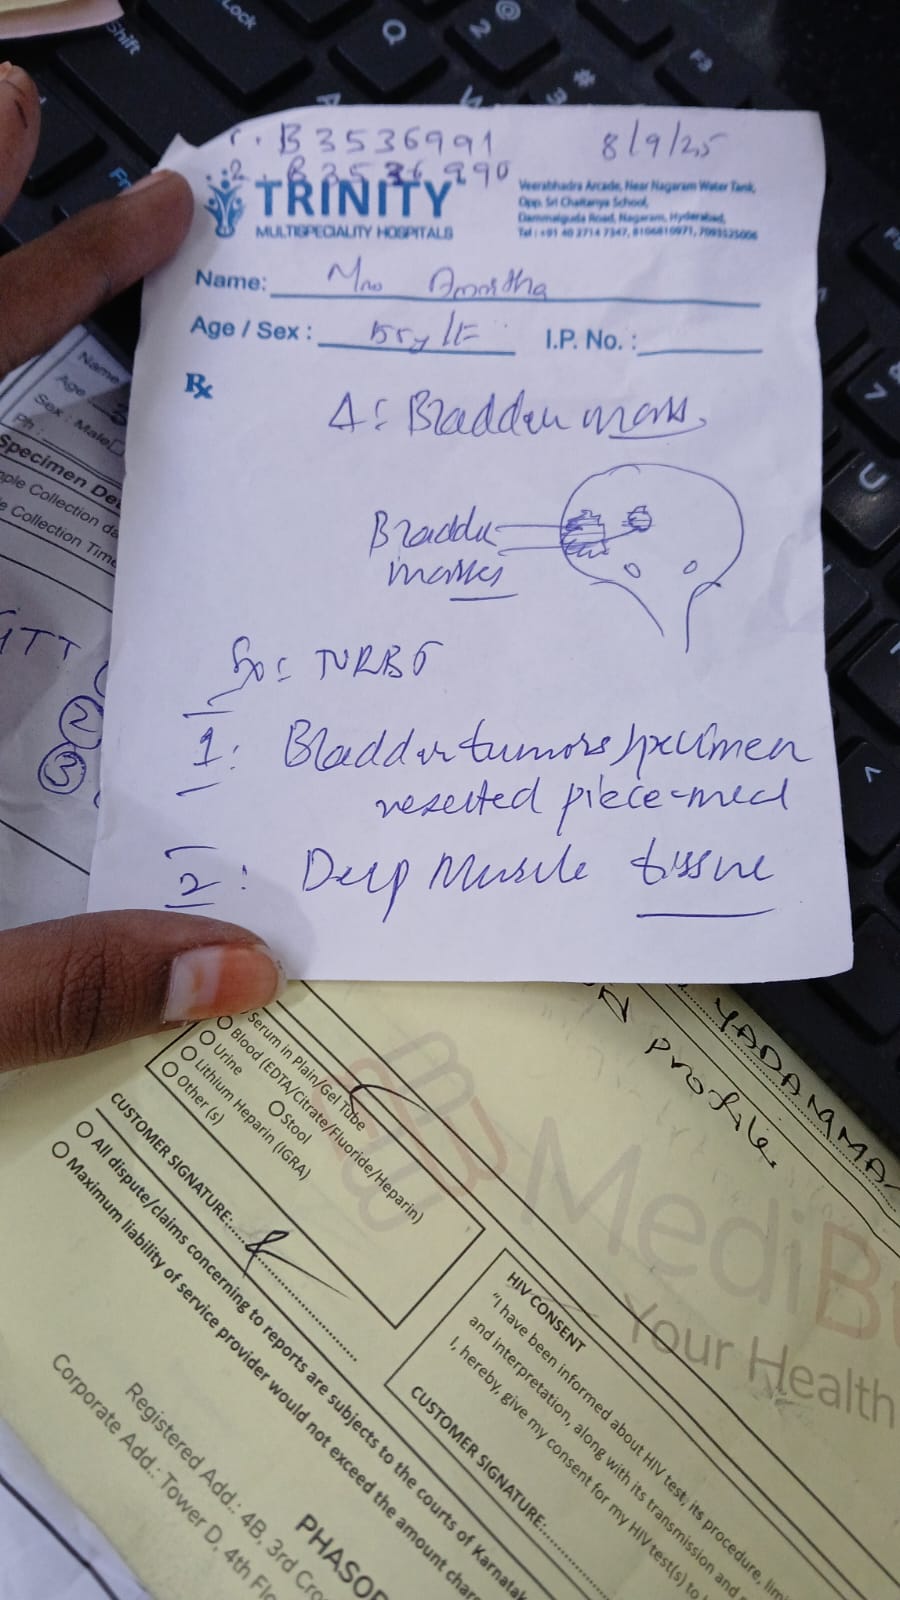 1. B3536991 8/9/25
2. B3536990
TRINITY
MULTISPECIALITY HOSPITALS
Veerabhadra Arcade, Near Nagaram Water Tank,
Opp. Sri Chaitanya School,
Dammaiguda Road, Nagaram, Hyderabad,
Tel : +91 40 2714 7347, 8106810971, 7093525006
Name: Mrs
Age / Sex : I.P. No. :
Rx
Δ: Bladder mass.
Bladder
masses
TURBT
1: Bladder tumors specimen
resected piece-meal
2: Deep Muscle tissue
Shift
Lock
Q
@
2
F3
Name
Age
Sex : Male
Ph :
Specimen De
ple Collection da
e Collection Time
2
3
Serum in Plain/Gel Tube
Blood (EDTA/Citrate/Fluoride/Heparin)
Urine Stool
Lithium Heparin (IGRA)
Other (s)
CUSTOMER SIGNATURE:
All dispute/claims concerning to reports are subjects to the courts of Karnatak
Maximum liability of service provider would not exceed the amount char
Registered Add.: 4B, 3rd Cro
Corporate Add.: Tower D, 4th Flo
PHASOR
YADAMMA
Profile.
MediB
Your Health
HIV CONSENT
"I have been informed about HIV test, its procedure, lim
and interpretation, along with its transmission and
I, hereby, give my consent for my HIV test(s) to
CUSTOMER SIGNATURE: